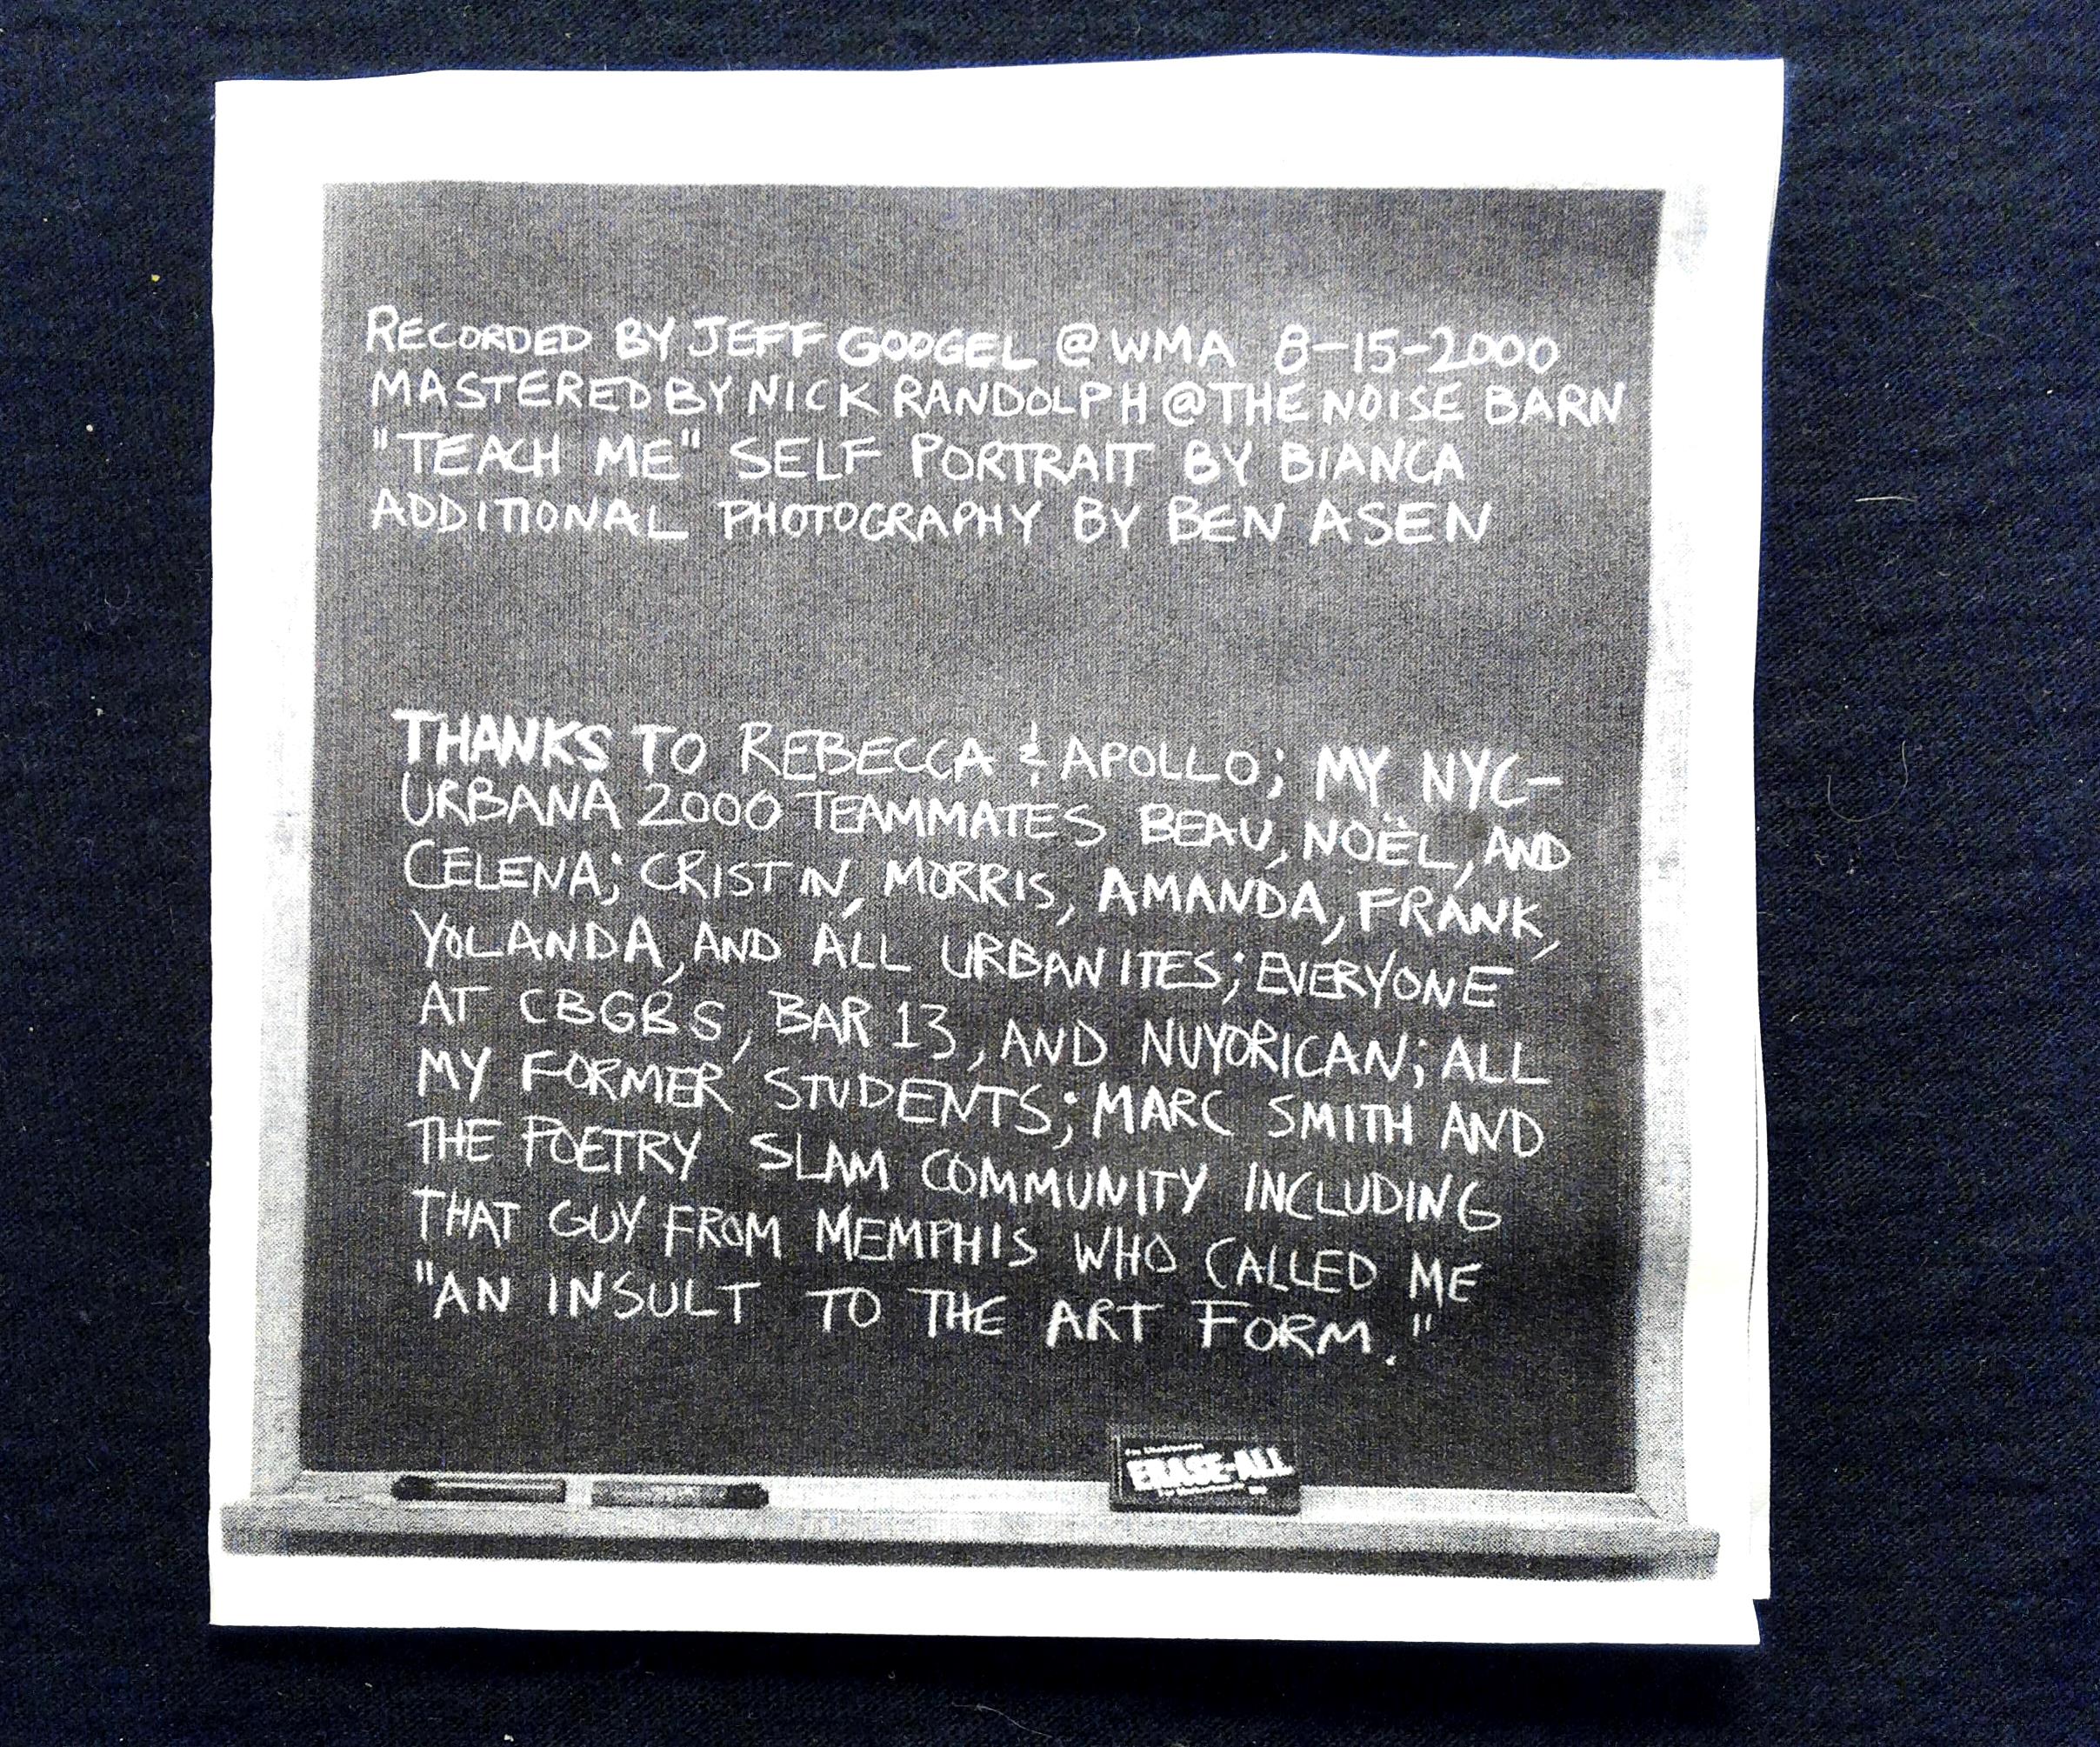 RECORDED BY JEFF GOOGEL @ WMA 8-15-2000
MASTERED BY NICK RANDOLPH @ THE NOISE BARN
"TEACH ME" SELF PORTRAIT BY BIANCA
ADDITIONAL PHOTOGRAPHY BY BEN ASEN
THANKS TO REBECCA & APOLLO; MY NYC-
URBANA 2000 TEAMMATES BEAU, NOËL, AND
CELENA; CRISTIN, MORRIS, AMANDA, FRANK,
YOLANDA, AND ALL URBANITES; EVERYONE
AT CBGBS, BAR 13, AND NUYORICAN; ALL
MY FORMER STUDENTS; MARC SMITH AND
THE POETRY SLAM COMMUNITY INCLUDING
THAT GUY FROM MEMPHIS WHO CALLED ME
"AN INSULT TO THE ART FORM."
ERASE-ALL